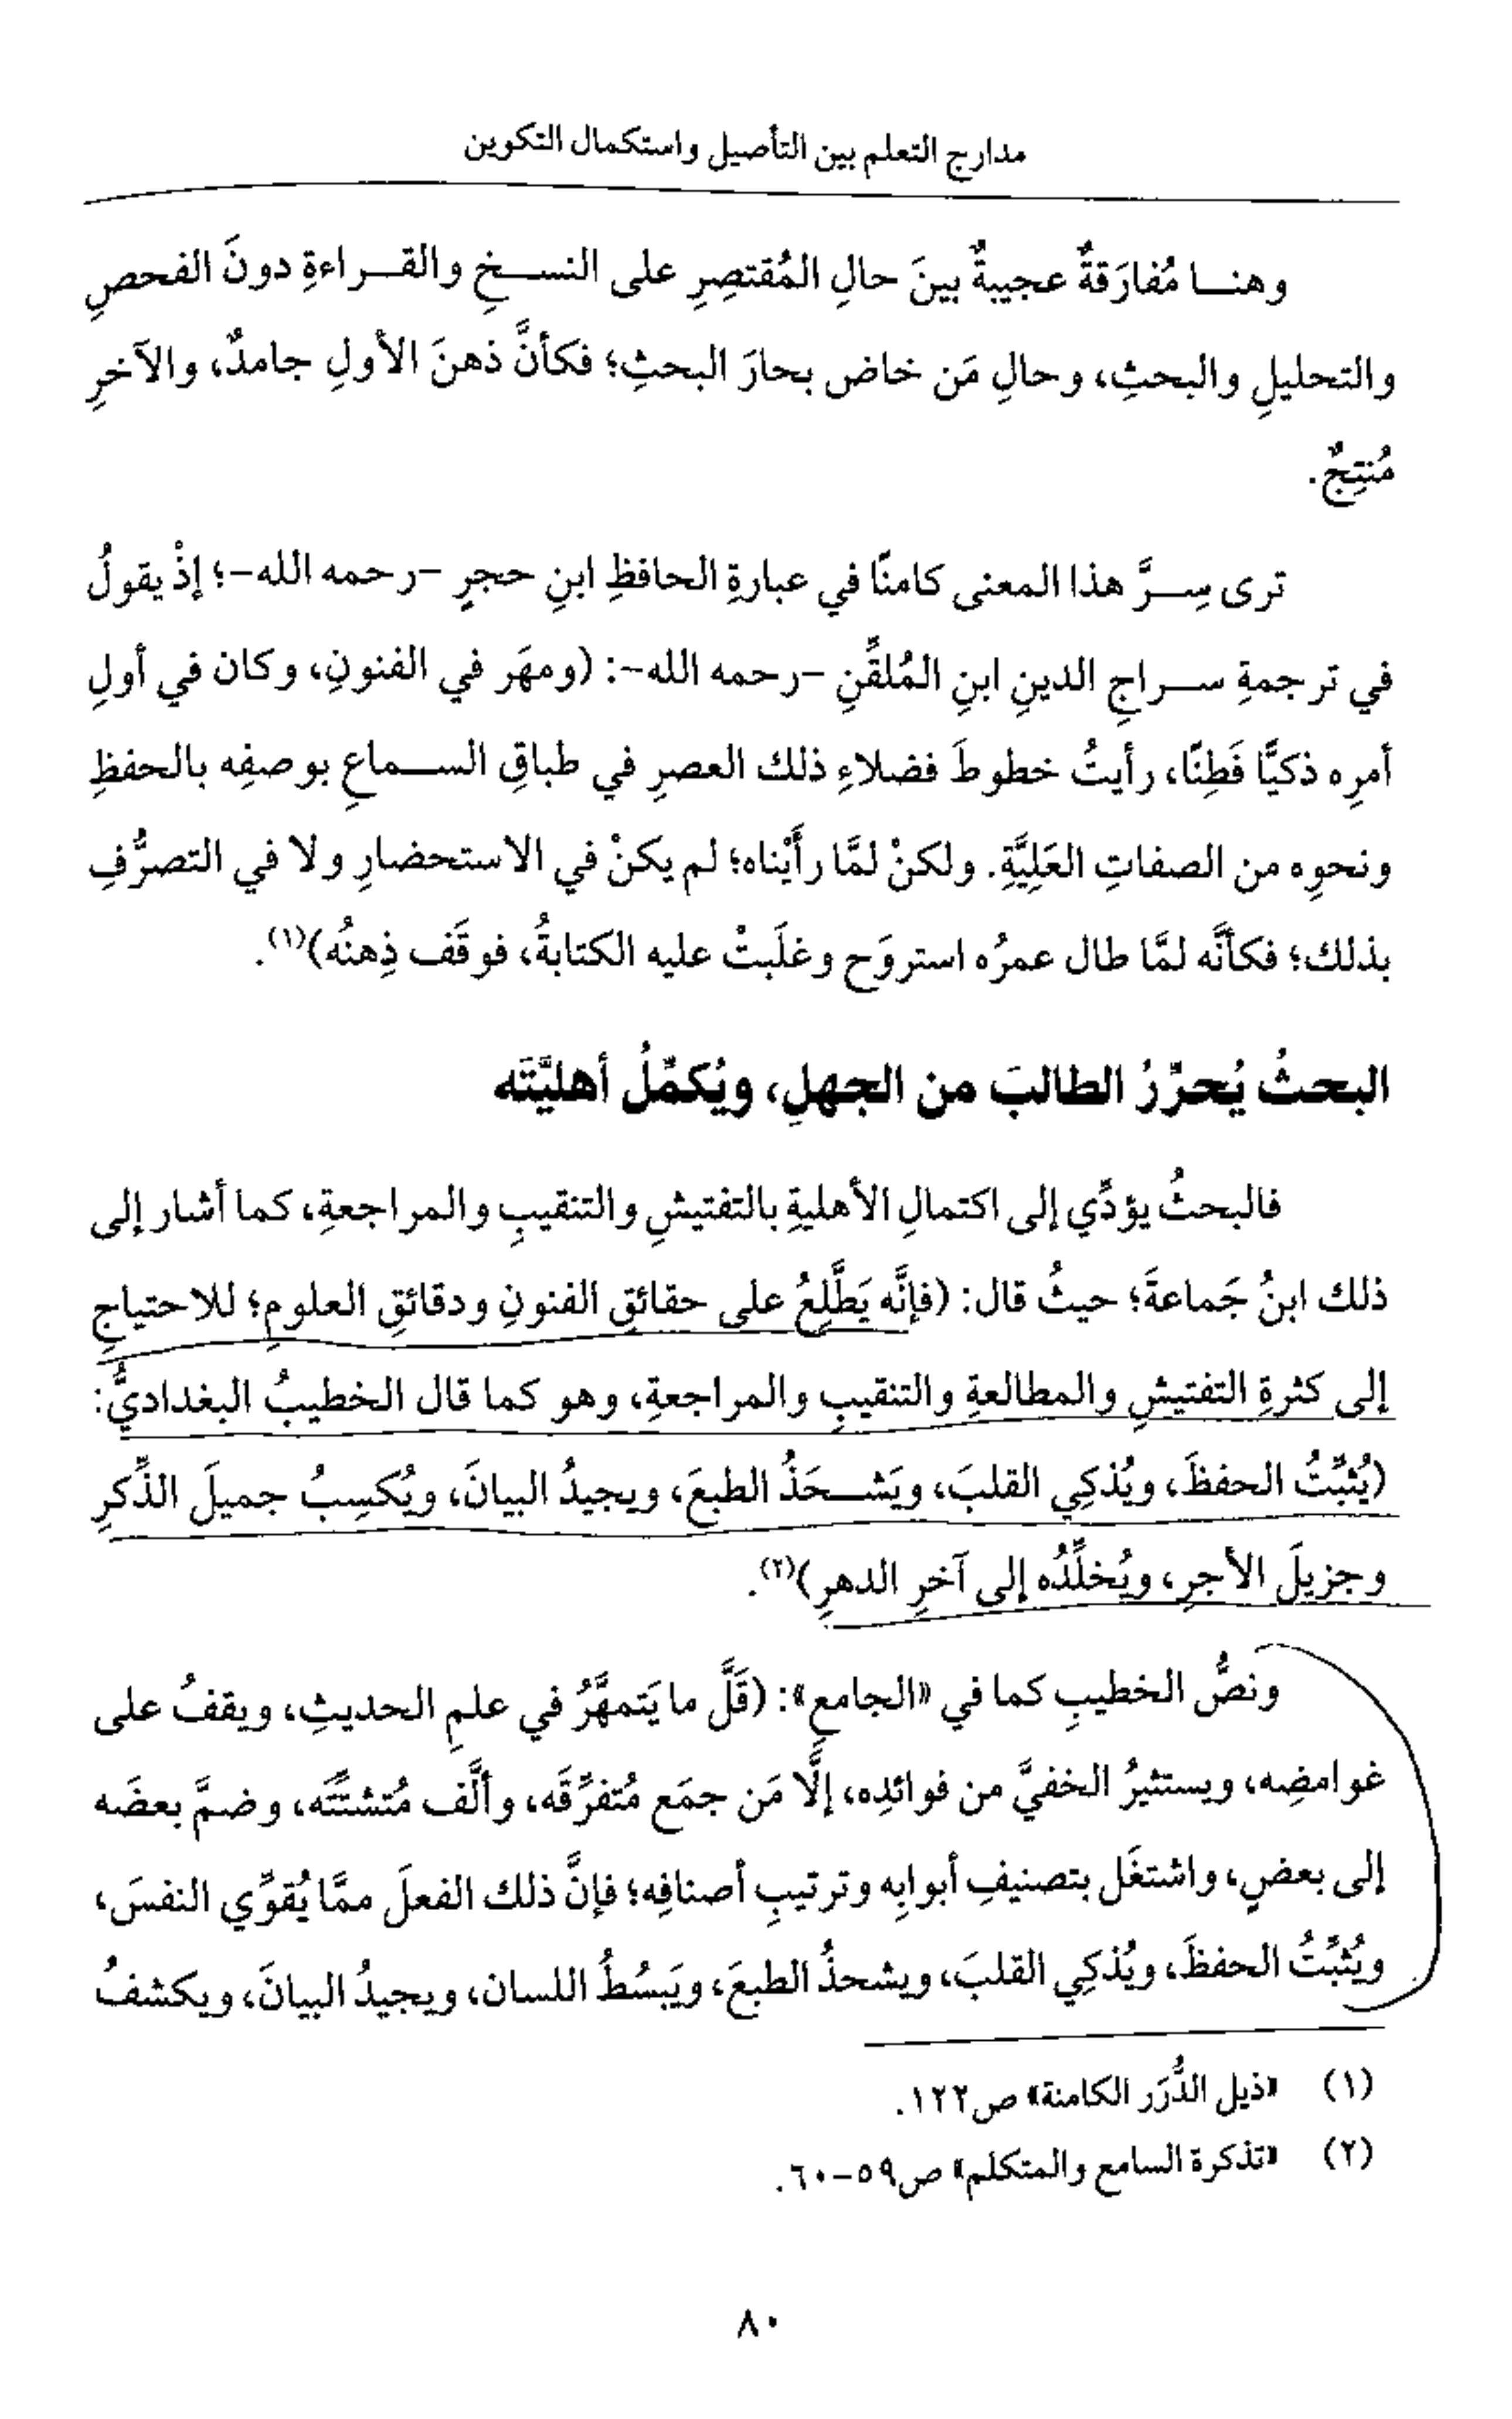 مدارج التعلم بين التأصيل واستكمال التكوين
وهنـــا مُفارَقةٌ عجيبةٌ بينَ حالِ المُقتصِرِ على النســـخِ والقـــراءةِ دونَ الفحصِ
والتحليلِ والبحثِ، وحالِ مَن خاض بحارَ البحثِ؛ فكأنَّ ذهنَ الأولِ جامدٌ، والآخرِ
مُنتِجٌ.
ترى سِـــرَّ هذا المعنى كامنًا في عبارةِ الحافظِ ابنِ حجرٍ -رحمه الله-؛ إذْ يقولُ
في ترجمةِ ســـراجِ الدينِ ابنِ المُلقِّنِ -رحمه الله-: (ومهَر في الفنونِ، وكان في أولِ
أمرِه ذكيًّا فَطِنًا، رأيتُ خطوطَ فضلاءِ ذلك العصرِ في طباقِ الســـماعِ بوصفِه بالحفظِ
ونحوِه من الصفاتِ العَلِيَّةِ. ولكنْ لمَّا رأَيْناه؛ لم يكنْ في الاستحضارِ ولا في التصرُّفِ
بذلك؛ فكأنَّه لمَّا طال عمرُه استروَح وغلَبتْ عليه الكتابةُ، فوقَف ذِهنُه)(١).
البحثُ يُحرِّرُ الطالبَ من الجهلِ، ويُكمِّلُ أهليَّتَه
فالبحثُ يؤدِّي إلى اكتمالِ الأهليةِ بالتفتيشِ والتنقيبِ والمراجعةِ، كما أشار إلى
ذلك ابنُ جَماعةَ؛ حيثُ قال: (فإنَّه يَطَّلِعُ على حقائقِ الفنونِ ودقائقِ العلومِ؛ للاحتياجِ
إلى كثرةِ التفتيشِ والمطالعةِ والتنقيبِ والمراجعةِ، وهو كما قال الخطيبُ البغداديُّ:
(يُثبِّتُ الحفظَ، ويُذكِي القلبَ، ويَشـــحَذُ الطبعَ، ويجيدُ البيانَ، ويُكسِبُ جميلَ الذِّكرِ
وجزيلَ الأجرِ، ويُخلِّدُه إلى آخرِ الدهرِ)(٢).
ونصُّ الخطيبِ كما في «الجامعِ»: (قَلَّ ما يَتمهَّرُ في علمِ الحديثِ، ويقفُ على
غوامضِه، ويستثيرُ الخفيَّ من فوائدِه، إلَّا مَن جمَع مُتفرِّقَه، وألَّف مُتشتِّتَه، وضمَّ بعضَه
إلى بعضٍ، واشتغَل بتصنيفِ أبوابِه وترتيبِ أصنافِه؛ فإنَّ ذلك الفعلَ ممَّا يُقوِّي النفسَ،
ويُثبِّتُ الحفظَ، ويُذكِي القلبَ، ويشحذُ الطبعَ، ويَبسُطُ اللسان، ويجيدُ البيانَ، ويكشفُ
(١) «ذيل الدُّرَر الكامنة» ص١٢٢.
(٢) «تذكرة السامع والمتكلم» ص٥٩-٦٠.
٨٠